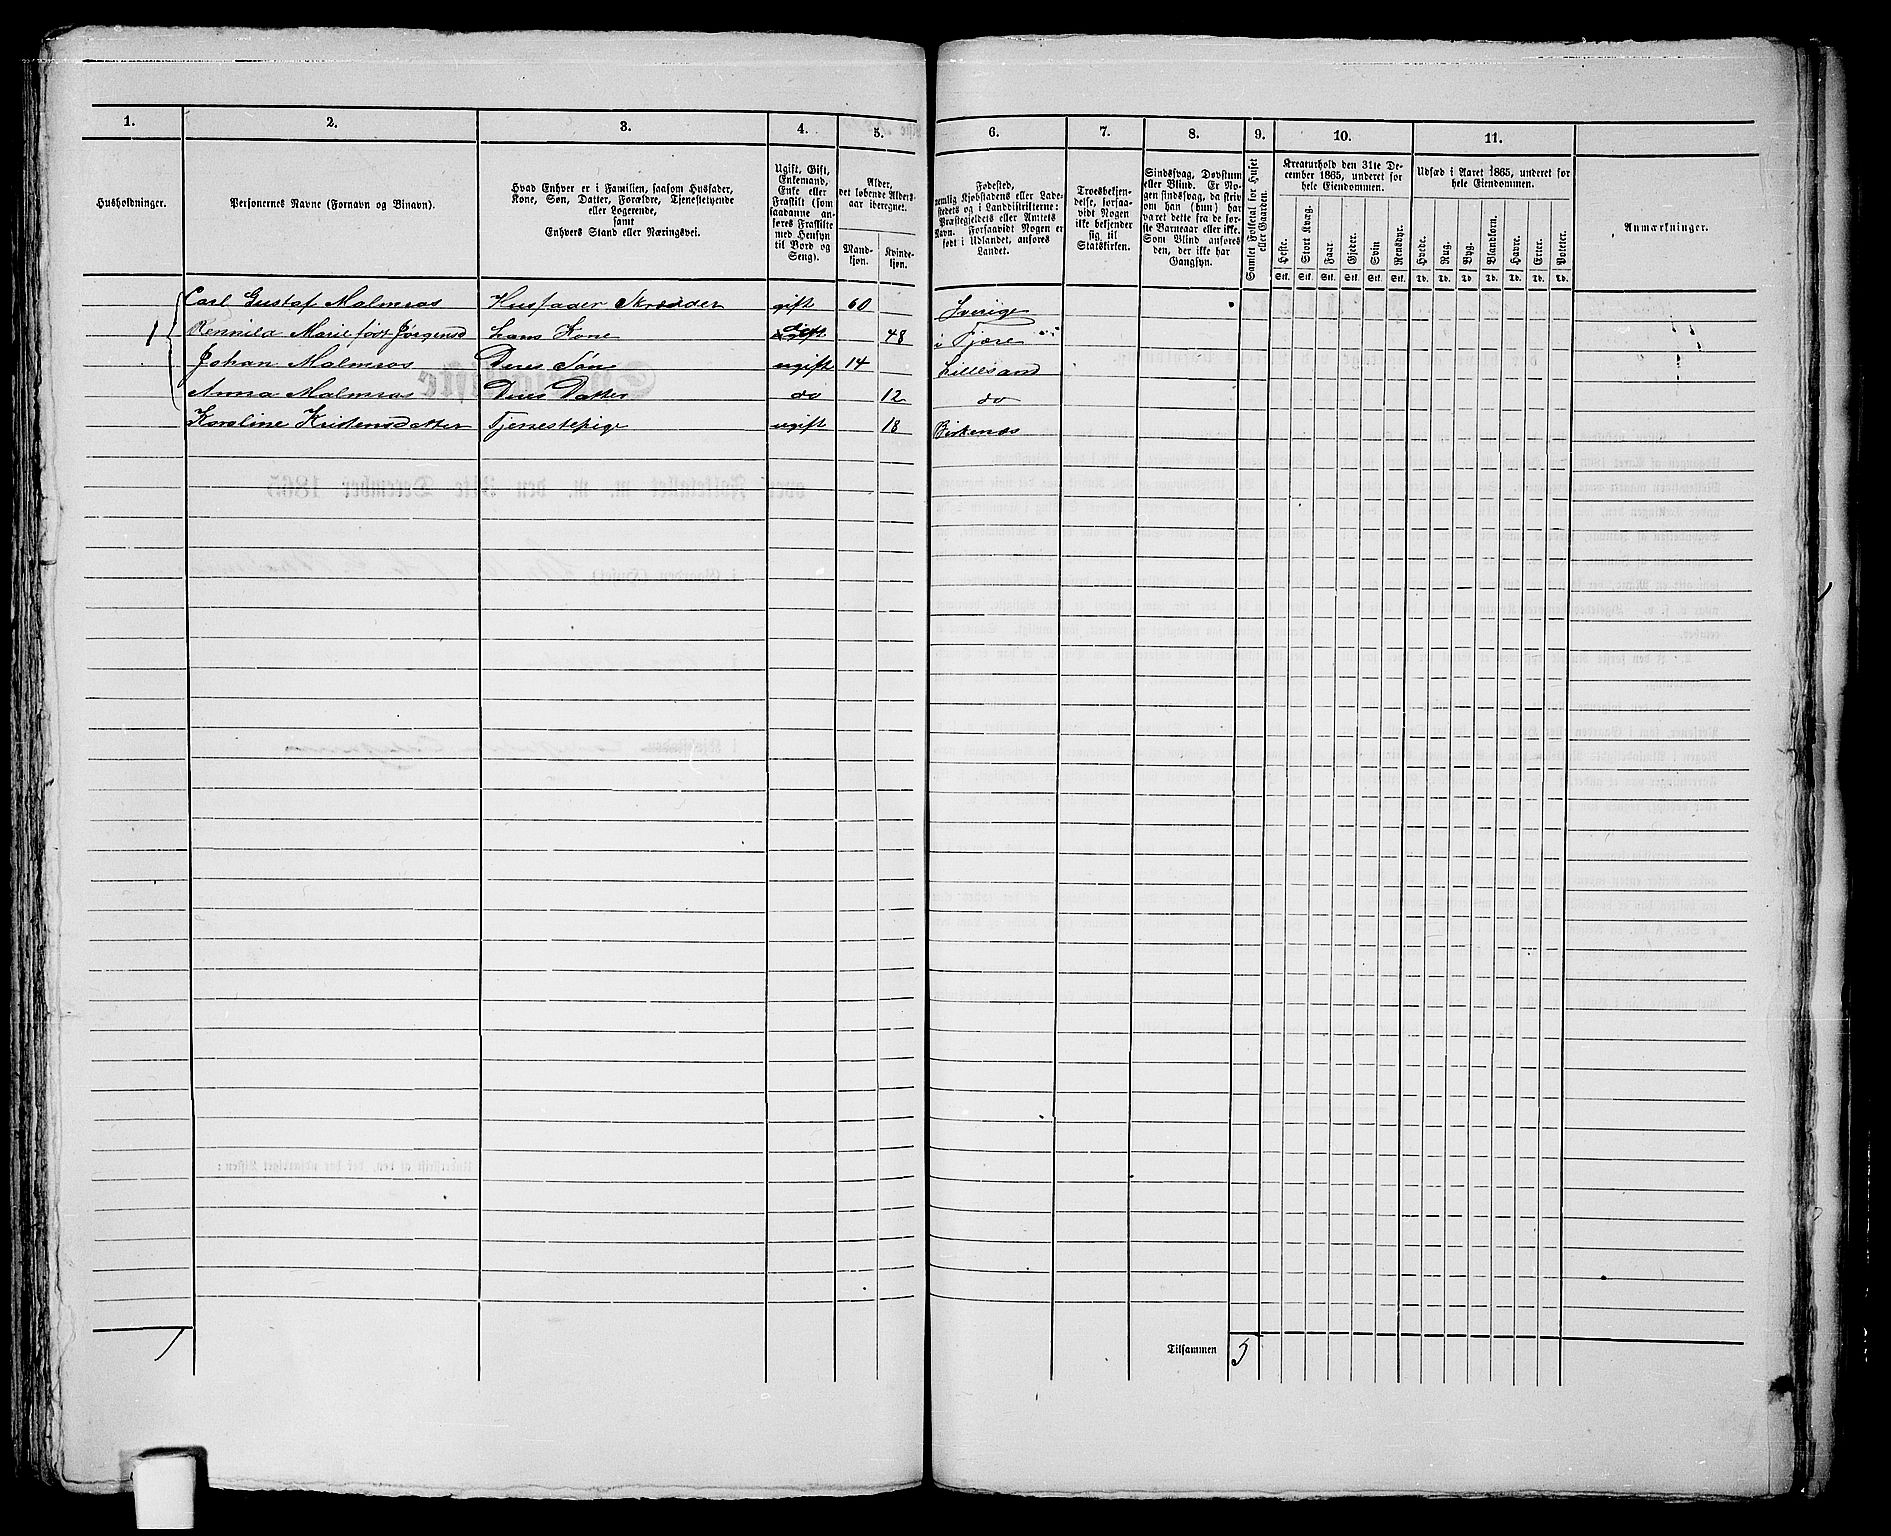 1. 2. 3. 4. 5. 6. 7. 8. 9. 10. 11.
Husholdninger.
Personernes Navne (Fornavn og Binavn).
Hvad Enhver er i Familien, saasom Husfader,
Kone, Søn, Datter, Forældre, Tjenestetyende
eller Logerende,
samt
Enhvers Stand eller Næringsvei.
Ugift, Gift,
Enkemand,
Enke eller
Fraskilt (som
saadanne an-
føres Fraskilte
med Hensyn
til Bord og
Seng).
Alder,
det løbende Alders-
aar iberegnet.
Mand-
kjøn.
Kvinde-
kjøn.
Fødested,
nemlig Kjøbstadens eller Lade-
stedets og i Landdistrikterne:
Præstegjeldets eller Amtets
Navn. Forsaavidt Nogen er
født i Udlandet, anføres
Landet.
Troesbekjen-
delse, forsaa-
vidt Nogen
ikke bekjender
sig til
Statskirken.
Sindssvag, Døvstum
eller Blind. Er No-
gen sindssvag, da skriv
om han (hun) har
været dette fra de før-
ste Barneaar eller ikke.
Som Blind anføres
den, der ikke har
Gangsyn.
Samlet Folketal for Huset
eller Gaarden.
Kreaturhold den 31te De-
cember 1865, underet for
hele Eiendommen.
Heste. Stort Kvæg. Faar. Gjeder. Svin Rensdyr.
Stk. Stk. Stk. Stk. Stk. Stk.
Udsæd i Aaret 1865, underet for
hele Eiendommen.
Hvede. Rug. Byg. Blandkorn. Havre. Erter. Poteter.
Td. Td. Td. Td. Td. Td. Td.
Anmærkninger.
Carl Gustaf Malmros Husfader Skrædder gift 60 Sverige
1 Rennild Marie født Jørgensd hans Kone gift 48 i Fjære
Johan Malmros Deres Søn ugift 14 Lillesand
Anna Malmros Deres Datter do 12 do
Karoline Kristensdatter Tjenestepige ugift 18 Birkenæs
1 Tilsammen 5